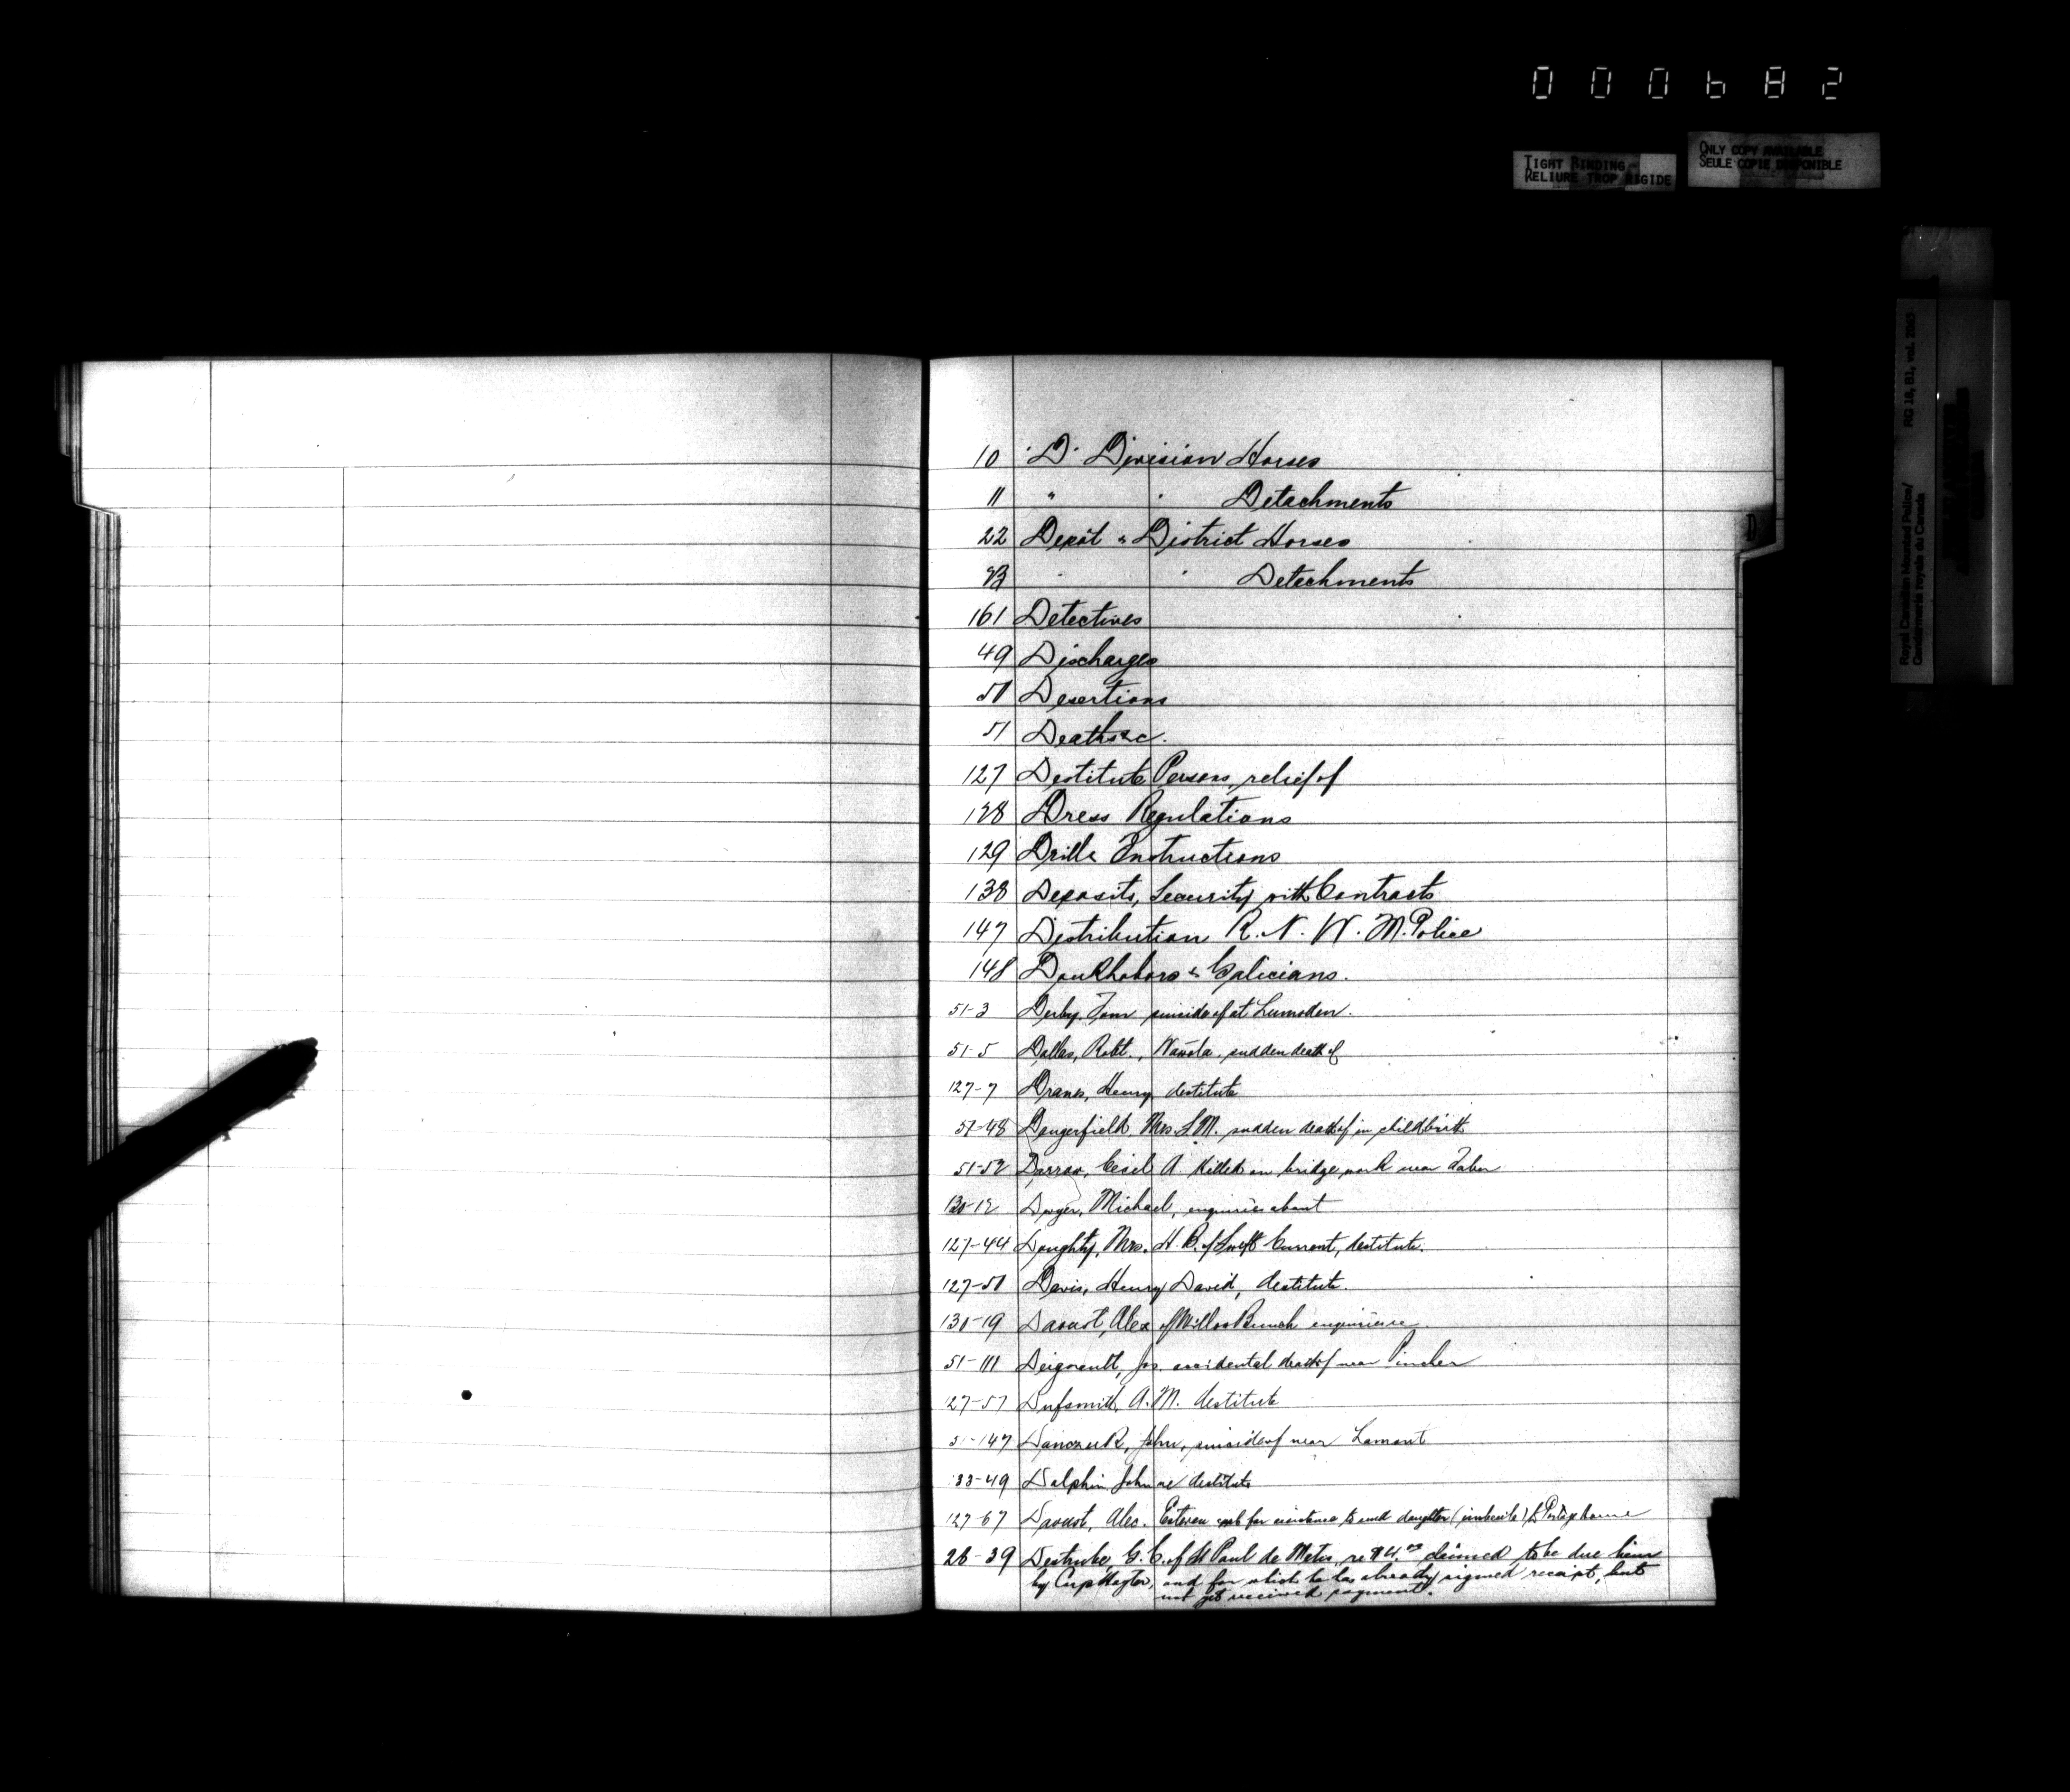 000682
TIGHT BINDING
RELIURE TROP RIGIDE
ONLY COPY AVAILABLE
SEULE COPIE DISPONIBLE
Royal Canadian Mounted Police/ RG 18, B1, vol.
Gendarmerie royale du Canada
D
10 "D" Division Horses
11 " " Detachments
22 Depôt " District Horses
23 " " Detachments
161 Detectives
49 Discharges
50 Desertions
51 Deaths &c.
127 Destitute Persons, relief of
128 Dress Regulations
129 Drill & Instructions
138 Deposits, Security with Contracts
147 Distribution R. N. W. M. Police
148 Doukhobors & Galicians.
51-3 Derby, Tom suicide of at Lumsden.
51-5 Dallas, Robt., sudden death of
127-7 Henry destitute
51-48 Dangerfield, Mrs. L.M. sudden death of in childbirth
51-52 Darrow, Cecil A. killed on bridge work near Taber
130-12 Dwyer, Michael, enquiries about
127-44 Doughty, Mrs. H. B. of Swift Current, destitute.
127-50 Davis, Henry David, destitute.
130-19 Daoust, Alex of Willow Bunch enquiries re
51-111 Jos. accidental death of near Pincher
127-57 A. M. destitute
51-147 Danczuk, John, suicide of near Lamont
33-49 Dolphin, John re destitute
127-67 Daoust, Alec. Estevan for assistance to send daughter (imbecile) to Portage
28-39 Destrube, G. C. of St Paul de Metis, re $4.00 claimed to be due him
by Corp and for which he has already signed receipt, but
not yet received payment.